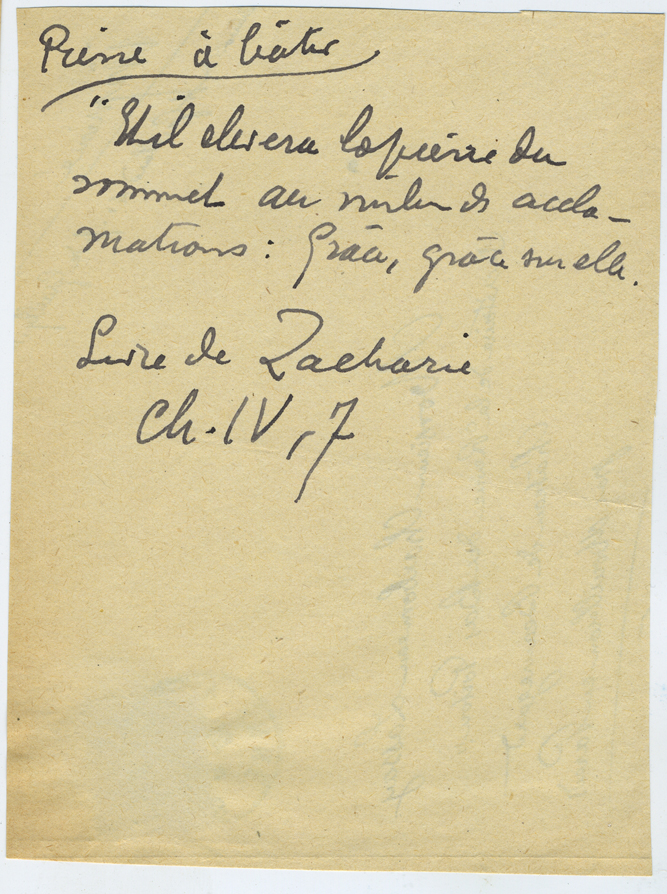 Pierre à bâtir
"Et il elevera la pierre du
sommet au milieu ds accla-
mations : Grâce, grâce sur elle.
Livre de Zacharie
Ch. IV, 7